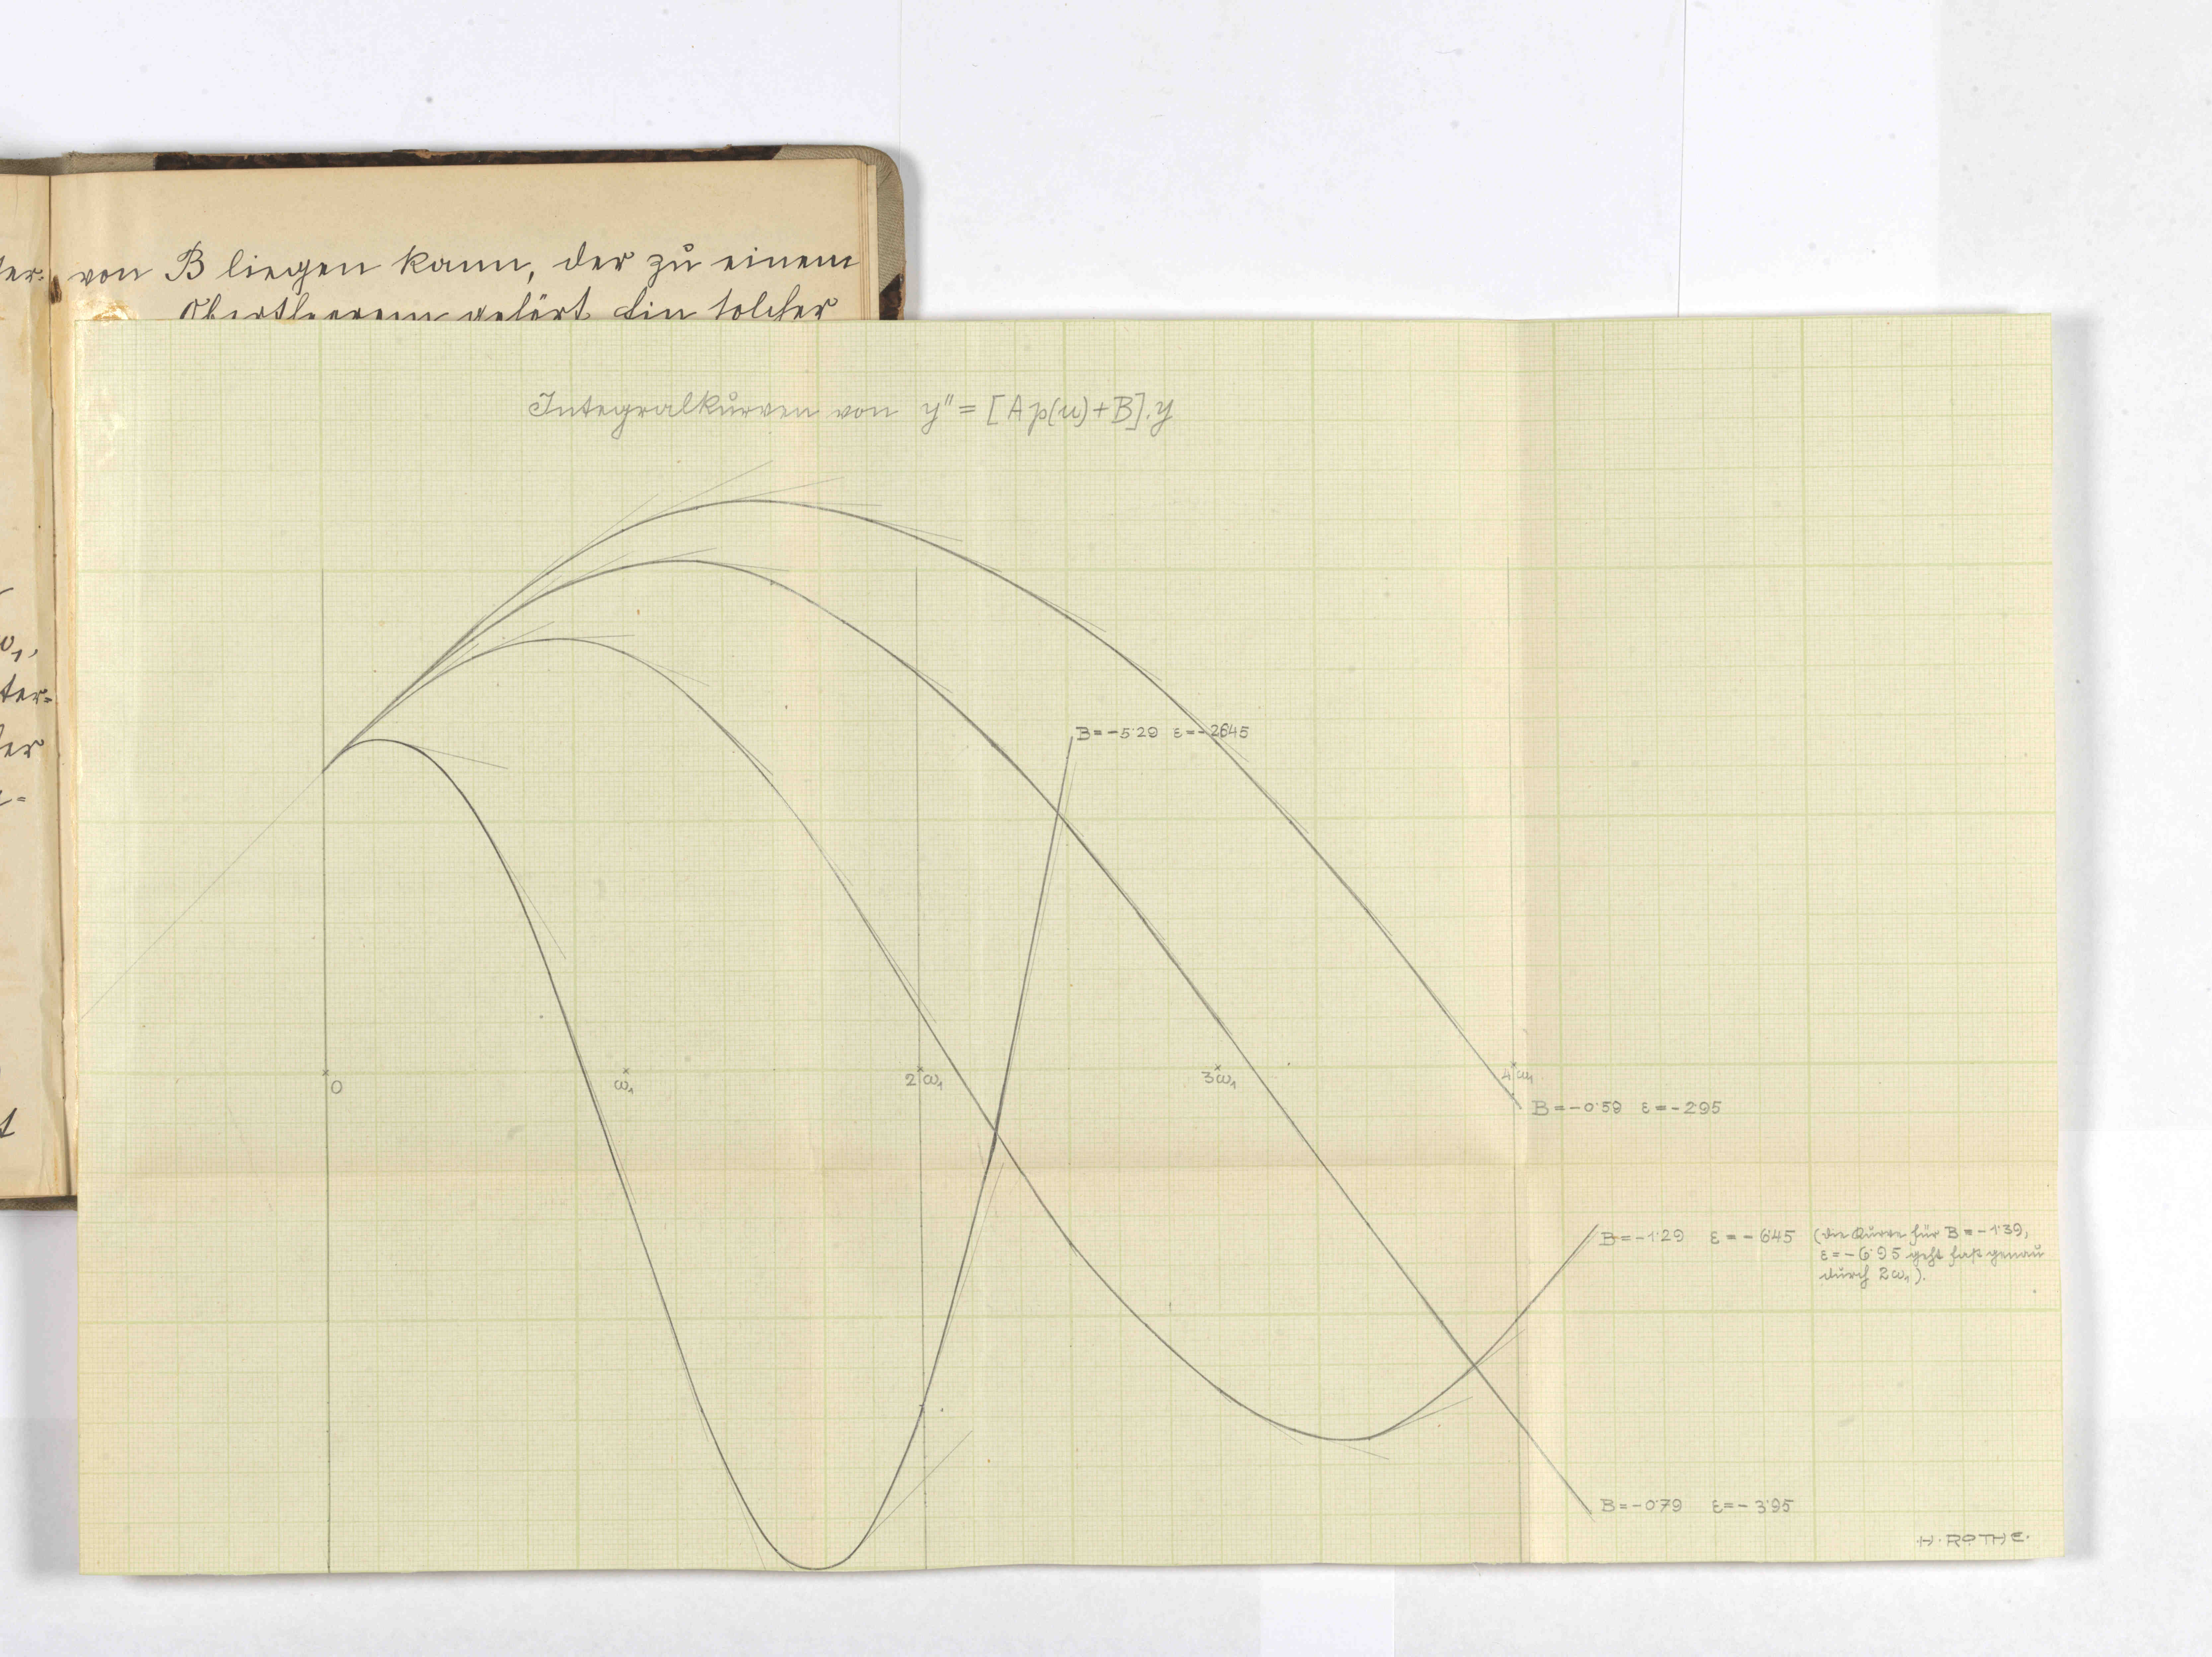 von B liegen kann, der zu einem
Obertheorem gehört. Ein solcher
ω₁,
ter=
Integralkurven von y″ = [A p(u) + B].y
B = -5·29 ε = -26·45
0
ω₁
2ω₁
3ω₁
4ω₁
B = -0·59 ε = -2·95
B = -1·29 ε = -6·45 (die Kurve für B = -1·39,
ε = -6·95 geht fast genau
durch 2ω₁).
B = -0·79 ε = -3·95
H. ROTHE.